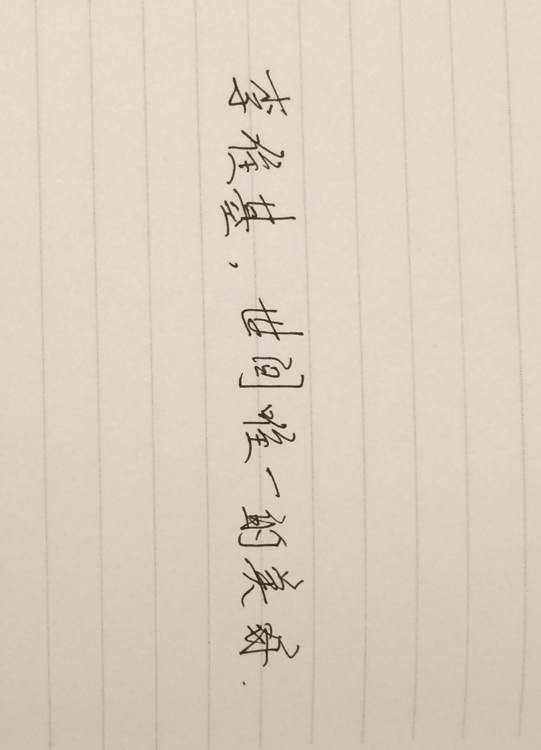 李俊基，世间唯一的美好.